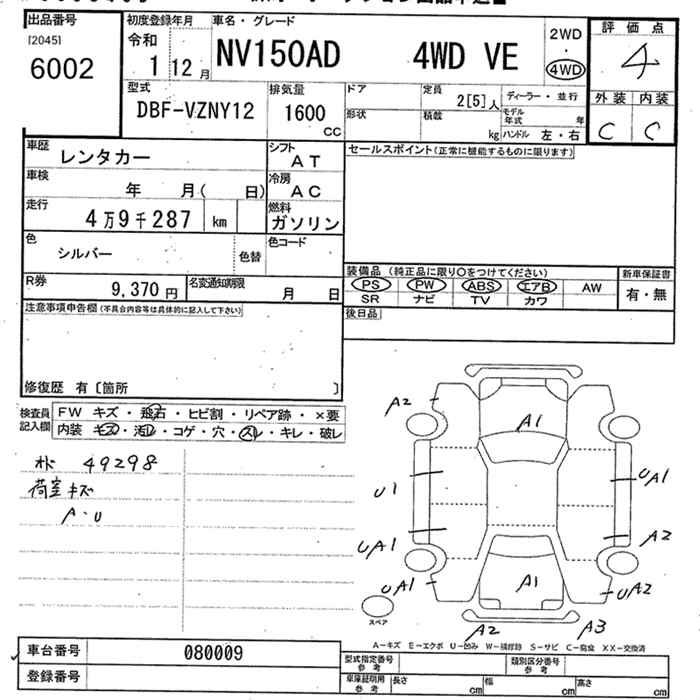 出品番号
[2045]
6002
初度登録年月
令和
1 12月
車名・グレード
NV150AD 4WD VE
2WD
・
4WD
評価点
4
外装 内装
C C
型式
DBF-VZNY12
排気量
1600
CC
ドア
形状
定員
2[5]人
積載
kg
ディーラー・並行
モデル年式 年
ハンドル 左・右
車歴
レンタカー
シフト
AT
車検
年 月( 日)
冷房
AC
走行
4万9千287 km
燃料
ガソリン
色
シルバー
色替
色コード
R券
9,370円
名変通知期限
月 日
セールスポイント(正常に機能するものに限ります)
装備品(純正品に限り○をつけてください)
新車保証書
PS PW ABS エアB AW
有・無
SR ナビ TV カワ
後日品
注意事項申告欄(不具合内容等は具体的に記入して下さい)
修復歴 有〔箇所 〕
検査員記入欄
FW キズ・飛石・ヒビ割・リペア跡・×要
内装 キズ・汚レ・コゲ・穴・スレ・キレ・破レ
49298
荷室キズ
A・U
A2
A1
U1
UA1
UA1
A2
UA1
A1
UA2
A2
A3
スペア
A-キズ E-エクボ U-凹み W-補修跡 S-サビ C-腐食 XX-交換済
車台番号
080009
登録番号
型式指定番号
参考
類別区分番号
参考
車庫証明用
参考
長さ cm
幅 cm
高さ cm